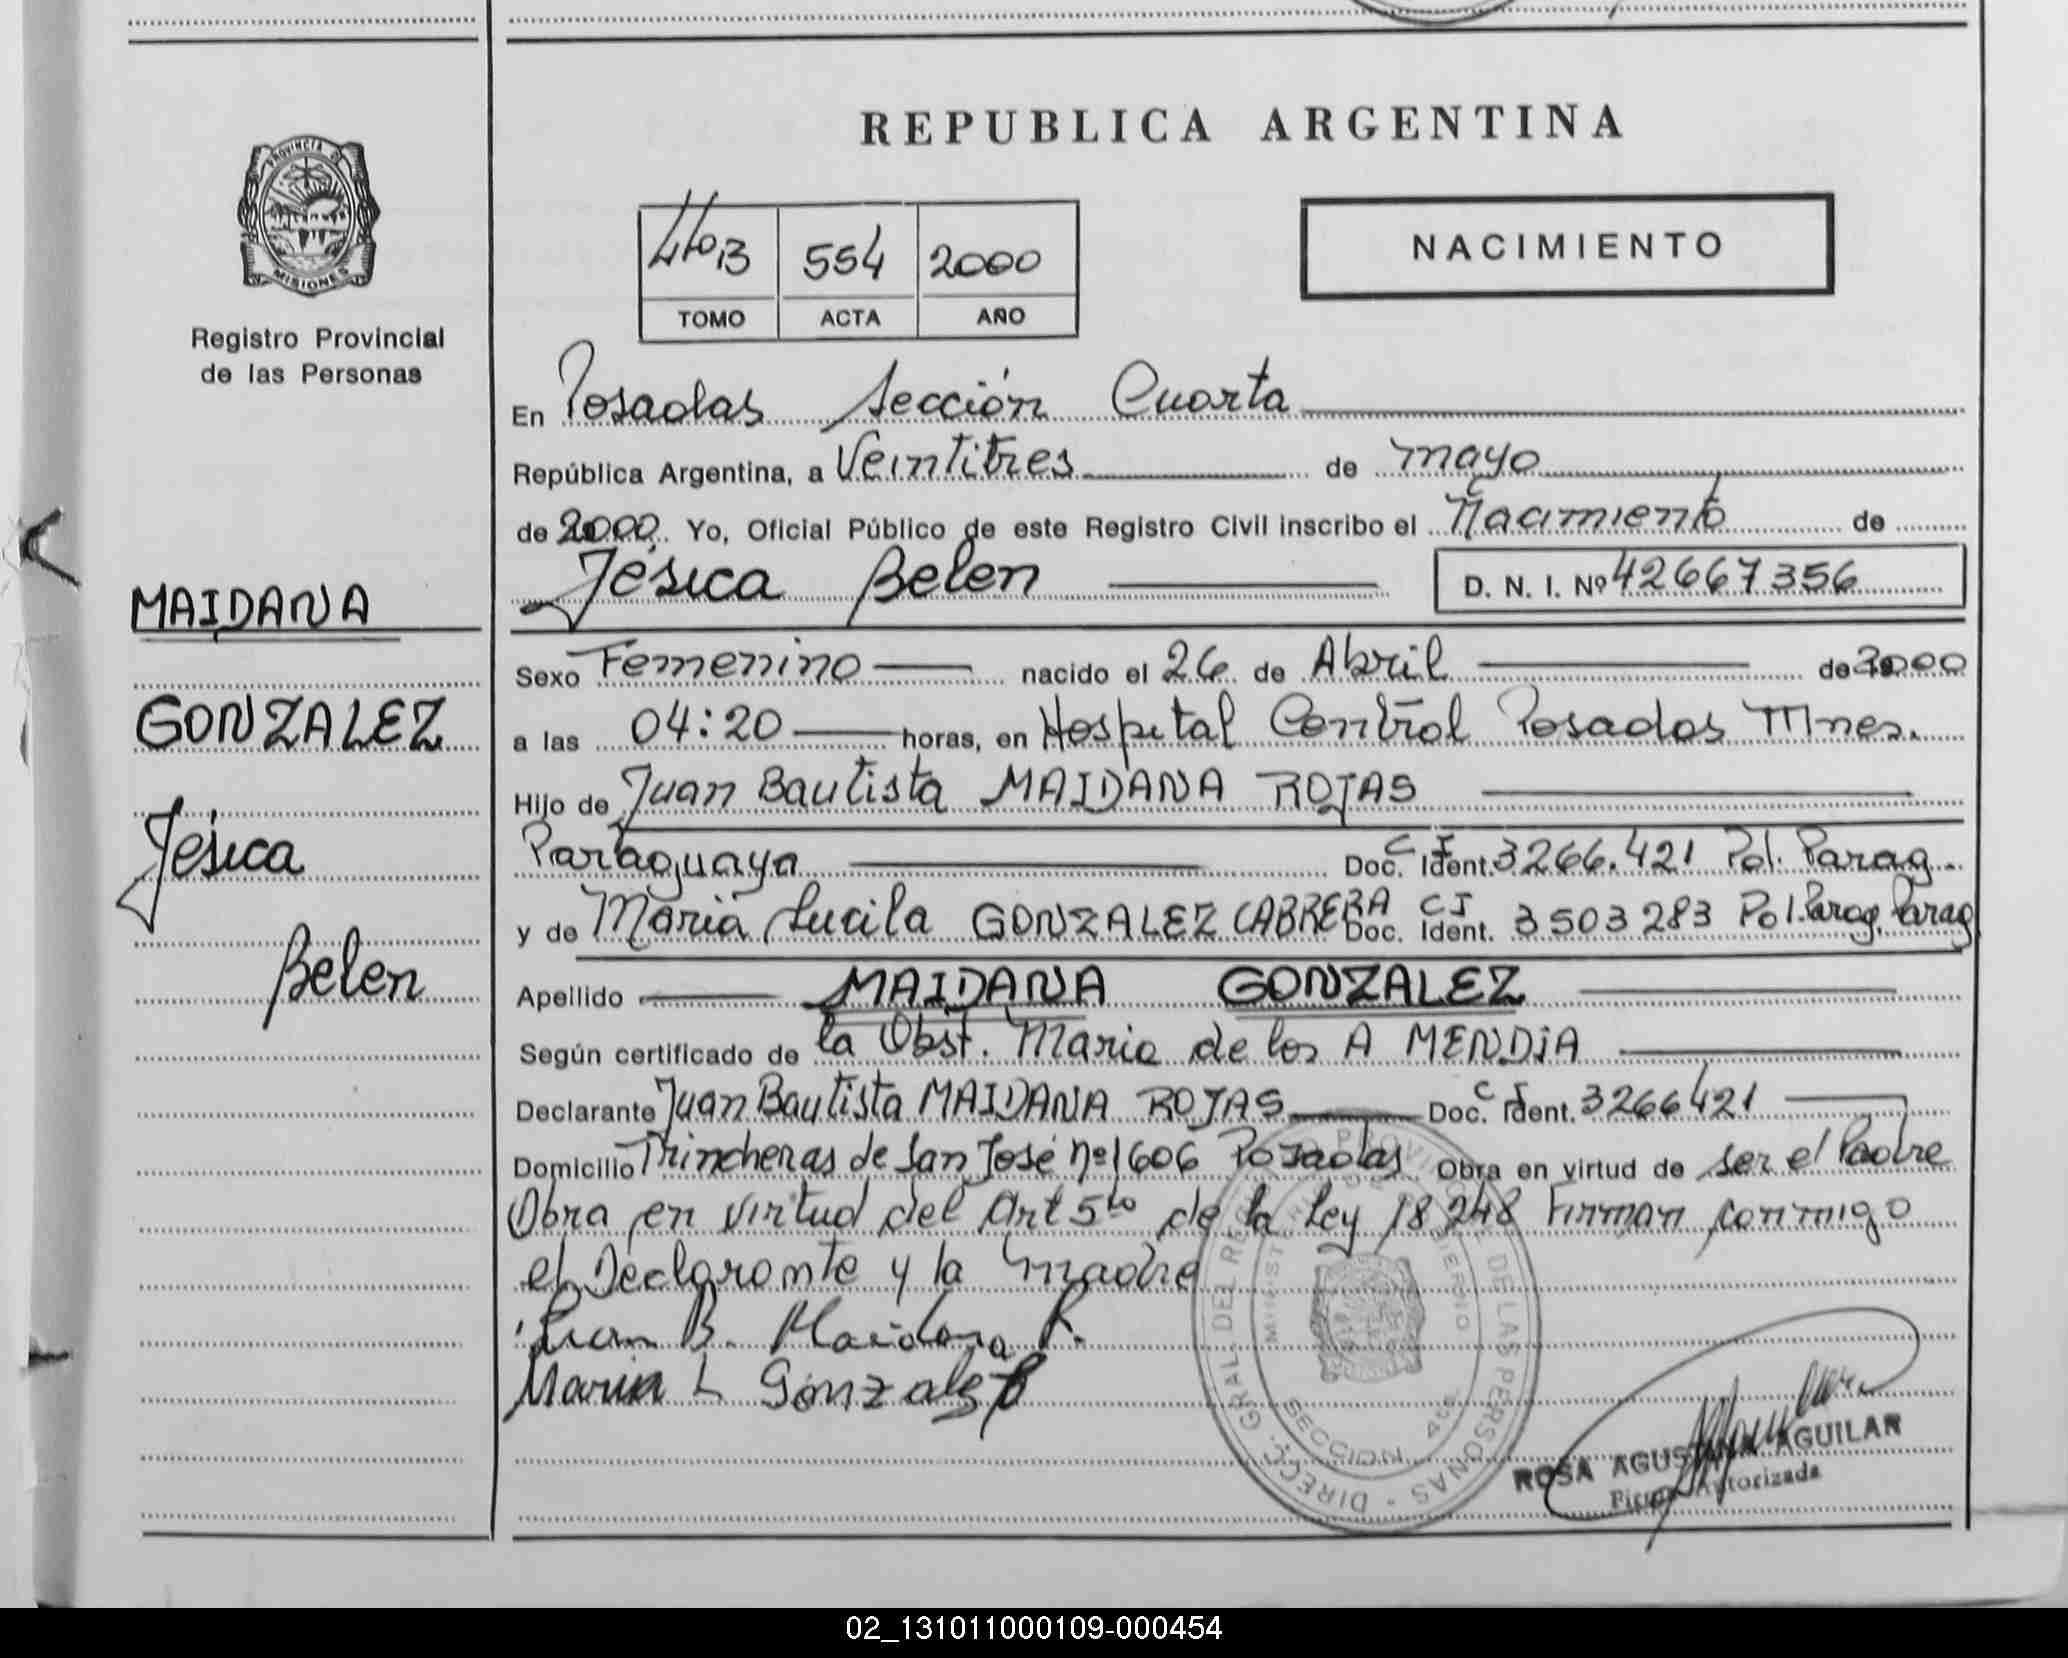 REPUBLICA ARGENTINA
PROVINCIA DE
MISIONES
Registro Provincial
de las Personas
554 2000
TOMO ACTA AÑO
NACIMIENTO
En Posadas Sección Cuarta
República Argentina, a Veintitres de mayo
de 2000. Yo, Oficial Público de este Registro Civil inscribo el Nacimiento de
Jésica Belen D. N. I. Nº 42667356
MAIDANA
GONZALEZ
Jésica
Belen
Sexo Femenino nacido el 26 de Abril de 2000
a las 04:20 horas, en Hospital Central Posadas Mnes.
Hijo de Juan Bautista MAIDANA ROJAS
Paraguaya Doc. Ident. C I 3266.421 Pol. Parag.
y de Maria Lucila GONZALEZ CABRERA Doc. Ident. C I 3503283 Pol. Parag. Parag
Apellido MAIDANA GONZALEZ
Según certificado de la Obst. Maria de los A MENDIA
Declarante Juan Bautista MAIDANA ROJAS Doc. Ident. C I 3266421
Domicilio Trincheras de San José nº 1606 Posadas Obra en virtud de ser el Padre
Obra en virtud del Art 5to de la Ley 18248 Firman conmigo
el Declarante y la madre
Juan B. Maidana R.
Maria L Gonzalez
DIRECC. GRAL. DEL REGISTRO PROVINCIAL DE LAS PERSONAS
SECCION 4ta
ROSA AGUSTINA AGUILAR
Firma Autorizada
02_131011000109-000454